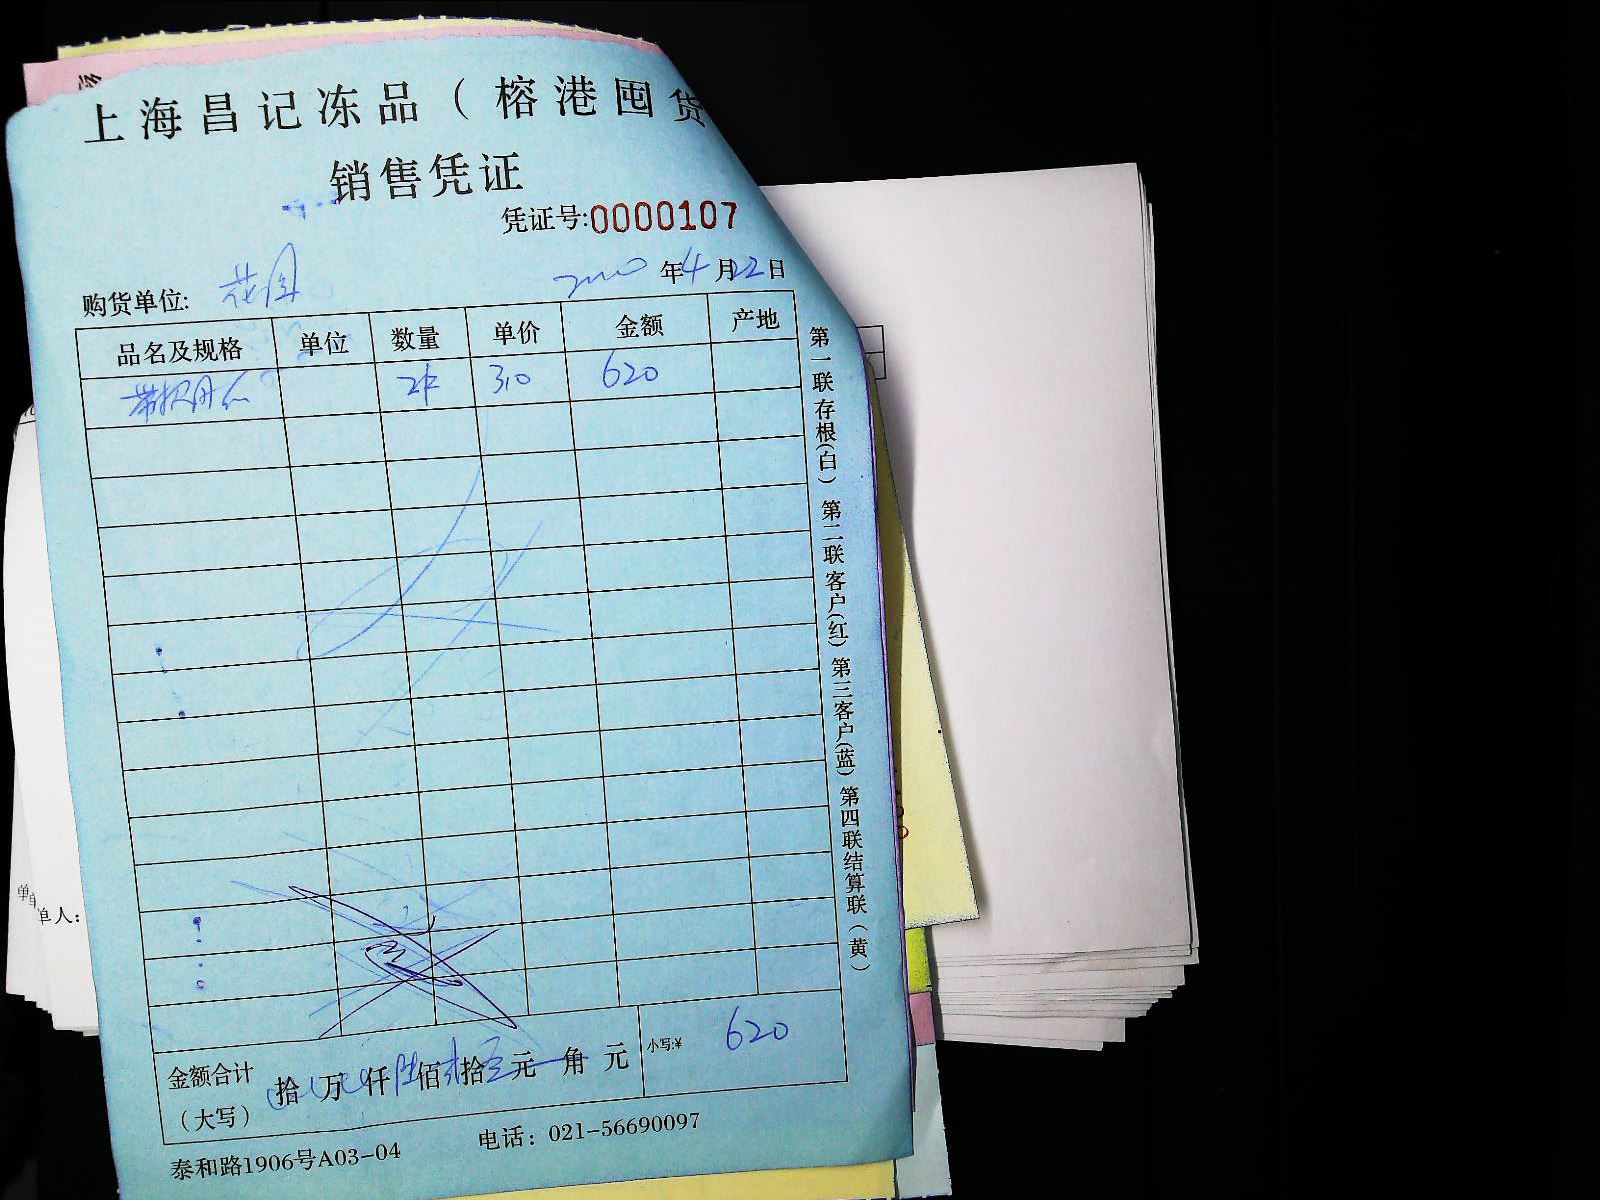 上海昌记冻品（榕港囤货
销售凭证
凭证号:0000107
年4月22日
购货单位: 花园
品名及规格 单位 数量 单价 金额 产地
2件 310 620
金额合计（大写） 拾 万 仟 陆佰 拾 元 角 元 小写:¥ 620
泰和路1906号A03-04 电话：021-56690097
第一联存根(白) 第二联客户(红) 第三客户(蓝) 第四联结算联（黄）
单人: